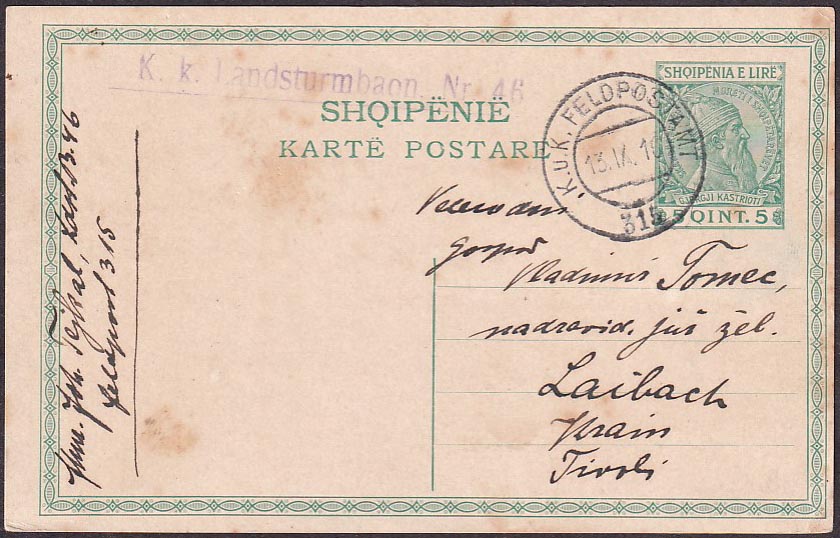 K. k. Landsturmbaon. Nr. 46
SHQIPËNIË
KARTË POSTARE
SHQIPËNIA E LIRË
GJERGJI KASTRIOTI
5 QINT. 5
K.u.K. FELDPOSTAMT
13. IX. 16
315
Gospod
Vladimir Tomec,
nadzevid. juž žel.
Laibach
Krain
Tivoli
Joh. Tejkal, Ldst. B. 46
Feldpost 315